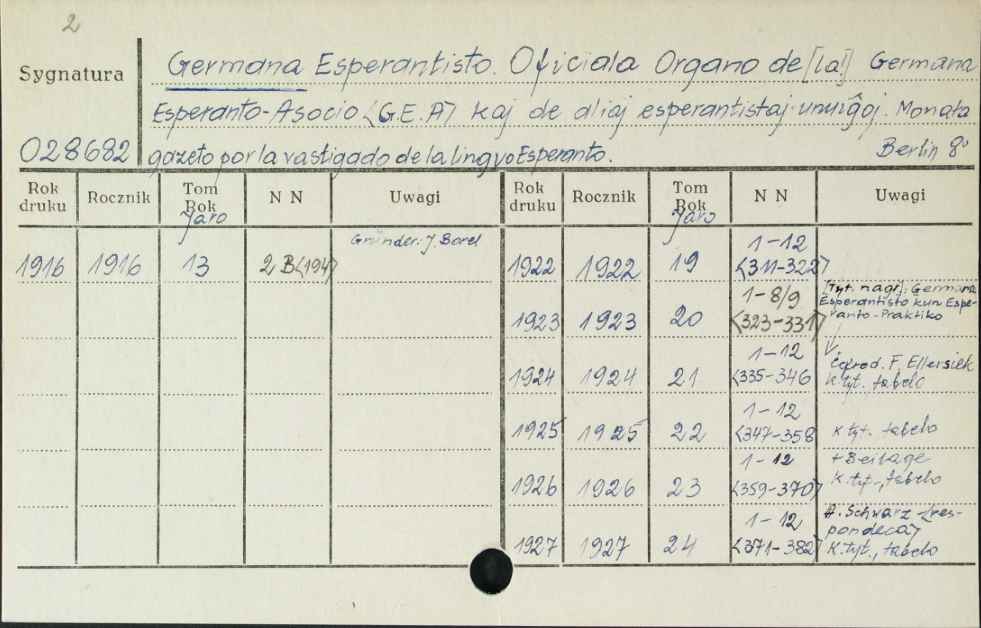 2
Sygnatura
Germana Esperantisto. Oficiala Organo de [la!] Germana
Esperanto-Asocio <G.E.A> kaj de aliaj esperantistaj unuiĝoj. Monata
028682 gazeto por la vastigado de la lingvo Esperanto. Berlin 8°
Rok druku Rocznik Tom Rok Jaro N N Uwagi Rok druku Rocznik Tom Rok Jaro N N Uwagi
Gründer: J. Borel
1916 1916 13 2 B<194>
1922 1922 19 1-12 <311-322>
1923 1923 20 1-8/9 <323-331> [Tyt. nagł]: Germana
Esperantisto kun Espe-
ranto-Praktiko
1924 1924 21 1-12 <335-346 Ĉefred. F. Ellersiek
K. tyt. tabelo
1925 1925 22 1-12 <347-358 K. tyt. tabelo
1926 1926 23 1-12 <359-370> + Beilage
K. tyt., tabelo
1927 1927 24 1-12 <371-382> A. Schwarz <res-
pondeca>
K. tyt., tabelo